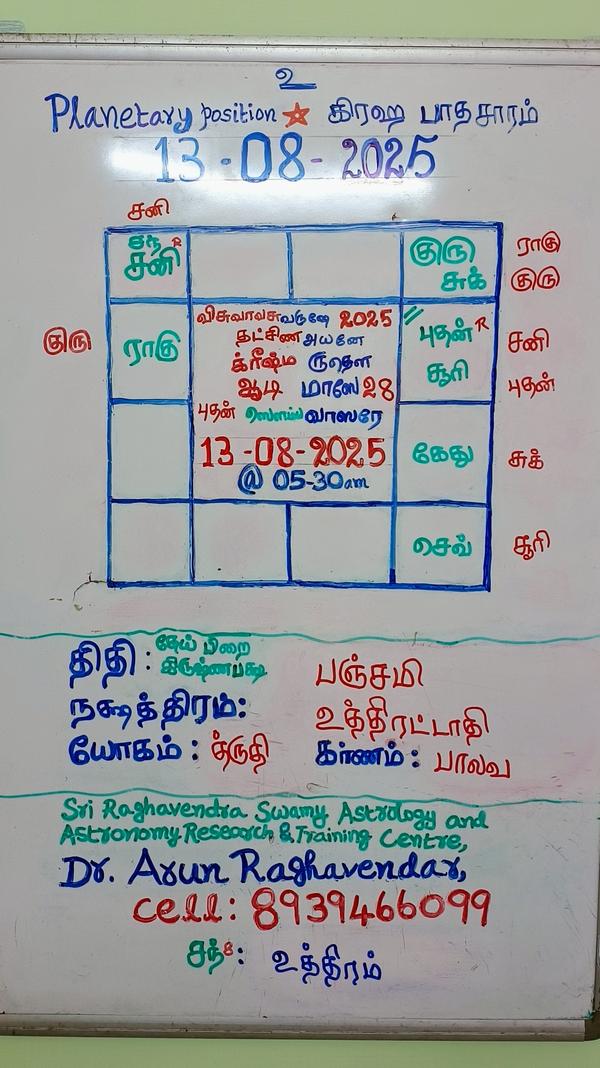 உ
Planetary position கிரஹ பாதசாரம்
13-08-2025
சனி
சந்
சனி R
குரு
சுக்
ராகு
குரு
குரு
ராகு
விசுவாவசு வருஷே 2025
தட்சிண அயனே
க்ரீஷ்ம ருதௌ
ஆடி மாஸே 28
புதன் ஸௌம்ய வாஸரே
13-08-2025
@ 05-30am
புதன் R
சூரி
சனி
புதன்
கேது
சுக்
செவ்
சூரி
திதி : தேய் பிறை
கிருஷ்ணபக்ஷ
பஞ்சமி
நக்ஷத்திரம்: உத்திரட்டாதி
யோகம் : த்ருதி கர்ணம் : பாலவ
Sri Raghavendra Swamy Astrology and
Astronomy Research & Training Centre,
Dr. Arun Raghavendar,
cell: 8939466099
சந் 8 : உத்திரம்